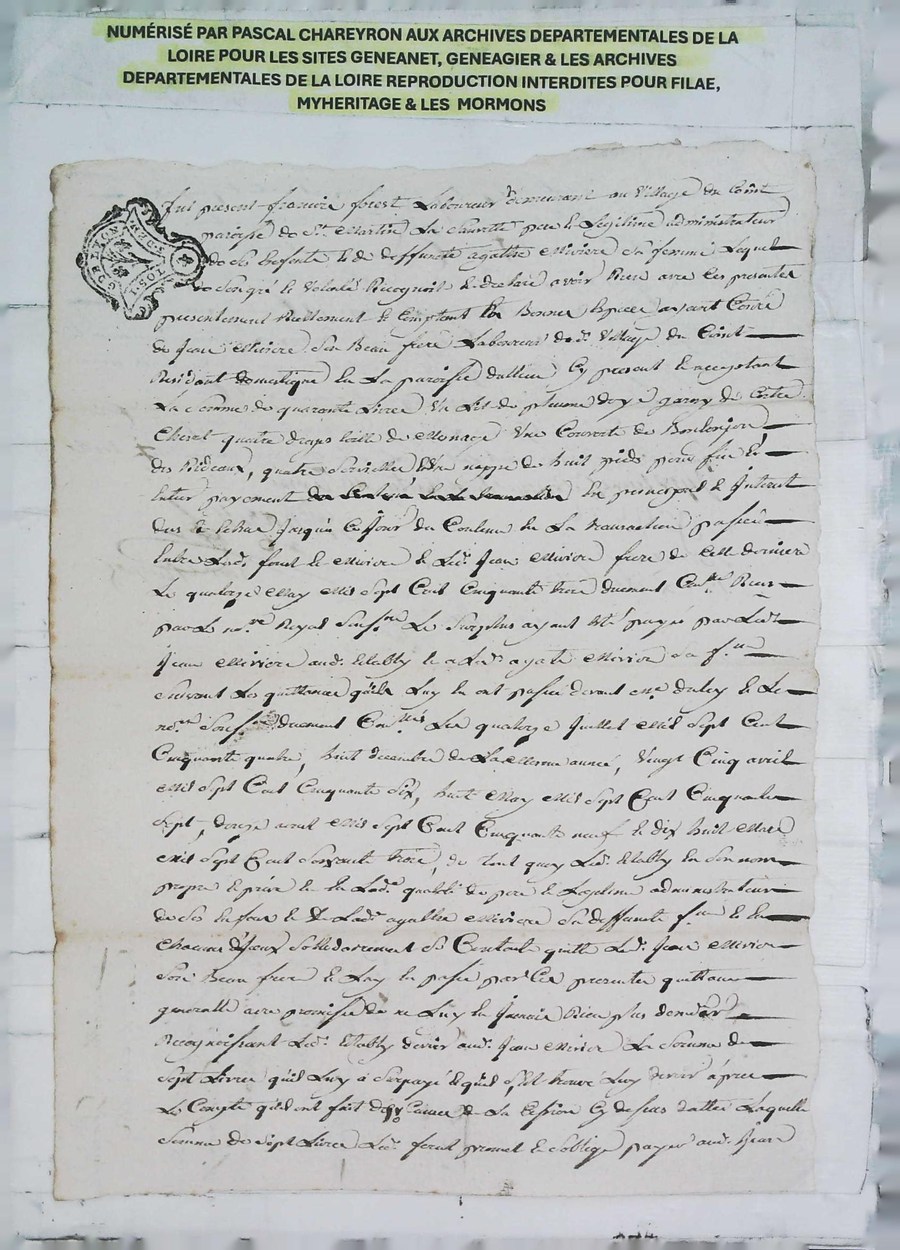 NUMÉRISÉ PAR PASCAL CHAREYRON AUX ARCHIVES DEPARTEMENTALES DE LA
LOIRE POUR LES SITES GENEANET, GENEAGIER & LES ARCHIVES
DEPARTEMENTALES DE LA LOIRE REPRODUCTION INTERDITES POUR FILAE,
MYHERITAGE & LES MORMONS
fut present francois forest Laboureur demeurant au Village du Coint
paroisse de St Martin La Sauveté pere & Legitime administrateur
de ses Enfents & de deffunte agathe Miviere sa femme Lequel
de son gré & Volonté Recognoit & declare avoir Receu avec Les presentes
presentement Reellement & Comptant En Bonnes Espece ayant Cours
de Jean Miviere son Beau frere Laboureur du Village du Coint
Residant domestique En La paroisse cy present & acceptant
La Somme de quarante Livres Un Lit de plume garny de
Chevet quatre draps toille de Menage Une Couverte de
des Rideaux, quatre Serviette & Une nappe de huit pieds pour fin &
Entier payement En principal & Interest
Jusqua Ce Jour du Contenu En La transaction passée
Entre Led. forest & Miviere & Led. Jean Miviere frere de Cette derniere
Le quatorze May Mil Sept Cent Cinquante trois duement Con.lée Receu
par Le no.re Royal Sous.né Le Surplus ayant Eté payé par Led.
Jean Miviere aud. Etably & a Lad. agathe Miviere sa f.me
Suivant Les quittances quils Luy En ont passée devant me. & Le
no.re Sous.né duement Con.lées Les quatorze Juillet Mil Sept Cent
Cinquante quatre, huit decembre de La Mesme année, Vingt Cinq avril
Mil Sept Cent Cinquante Six, huit May Mil Sept Cent Cinquante
Sept, douze aout Mil Sept Cent Cinquante neuf & dix huit Mars
Mil Sept Cent Soixante trois, de tout quoy Led. Etably En Son nom
propre & privé & En Lad.e qualité de pere & Legitime administrateur
de Ses Enfens & de Lad. agathe Miviere Sa deffunte f.me & En
Chacun d'Jceux Sollidairement Se Contente quitte Led. Jean Miviere
Son Beau frere & Luy En passe par Ces presentes quittance
generalle avec promesse de ne Luy En Jamais Rien plus demander
Recognoissant Led. Etably devoir aud. Jean Miviere La Somme de
Sept Livres quil Luy a Surpayé & quil S'est trouvé Luy devoir apres
Le Compte quils ont fait de La Cession Cy dessus dattée Laquelle
Somme de Sept Livres Led. forest promet & Soblige payer aud. Jean